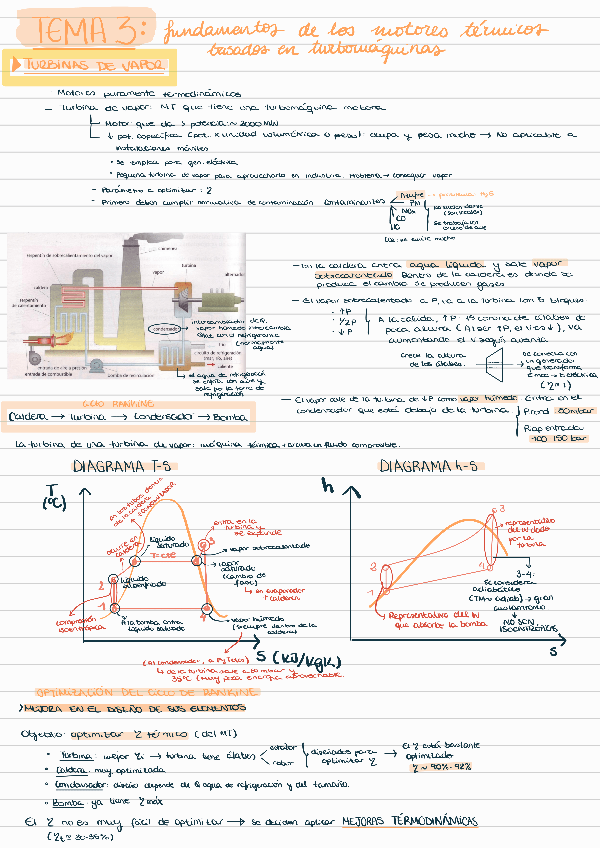 TEMA 3: fundamentos de los motores térmicos
basados en turbomáquinas
TURBINAS DE VAPOR
Motores puramente termodinámicos
- Turbina de vapor: MT que tiene una turbomáquina motora
Motor que da > potencia: ≈ 2000 MW
↓ pot. específica (pot. x unidad volumétrica o peso): ocupa y pesa mucho → No aplicable a
instalaciones móviles
• Se emplea para gen. eléctrica
• Pequeña turbina de vapor para aprovecharla en industria. Problema → conseguir vapor
- Parámetro a optimizar: η
- Primero deben cumplir normativa de contaminación
contaminantes
Azufre
PM
NOx
CO
HC
chimenea
serpentín de sobrecalentamiento del vapor
vapor
turbina
alternador
caldera
serpentín
de calentamiento
condensador
circuito de refrigeración
caliente
entrada en alta presión
entrada de combustible
bomba de recirculación
intercambiador de Q.
vapor húmedo intercambia
Qlat con el refrigerante
(normalmente
agua)
el agua de refrigeración
se enfría con aire y
sale por la torre de
refrigeración
- En la caldera entra agua líquida y sale vapor
sobrecalentado. Dentro de la caldera es donde se
produce el cambio de fase
- El vapor sobrecalentado a P↑ va a la turbina con 3 bloques
• ↑P
• 1/2 P
• ↓P
A la salida, ↑P
aumentando el V según avanza
crece la altura
de los álabes.
se conecta con
un generador
que transforma
Emec → E eléctrica
(η ≈ 1)
- El vapor sale de la turbina de ↓P como vapor húmedo. Entra en el
condensador que está debajo de la turbina
Pcond: 50mbar
Pap entrada:
100-150 bar
CICLO RANKINE
Caldera → Turbina → Condensador → Bomba
La turbina de una turbina de vapor: máquina térmica
DIAGRAMA T-S
T
(ºC)
ocurre en
caldera
líquido
saturado
T=cte
entra en la
turbina y
se expande
3
vapor sobrecalentado
vapor
saturado
(cambio de
fase)
en evaporador
↑ calderín
líquido
subenfriado
2
1
4
compresión
isoentrópica
A la bomba entra
líquido saturado
vapor húmedo
(siempre dentro de la
caldera)
S (kJ/kgK)
de la turbina sale a 50 mbar y
35ºC (muy poca energía aprovechable.
DIAGRAMA h-S
h
3
representativo
del W dado
por la
turbina
2
1
4
3-4:
Se considera
adiabático
(TM → adiab) → gran
NO SON
ISOENTRÓPICAS
Representativo del W
que absorbe la bomba
S
OPTIMIZACIÓN DEL CICLO DE RANKINE
MEJORA EN EL DISEÑO DE SUS ELEMENTOS
Objetivo: optimizar η térmico (del MT)
• Turbina: mejor ηi → turbina tiene álabes
estator
rotor
diseñados para
optimizar η
El η está bastante
optimizado
η ≈ 90%-92%
• Caldera: muy optimizada
• Condensador: diseño depende de Q agua de refrigeración y del tamaño.
• Bomba: ya tiene η máx
El η no es muy fácil de optimizar → se deciden aplicar MEJORAS TERMODINÁMICAS
(ηt ≈ 30-35%)